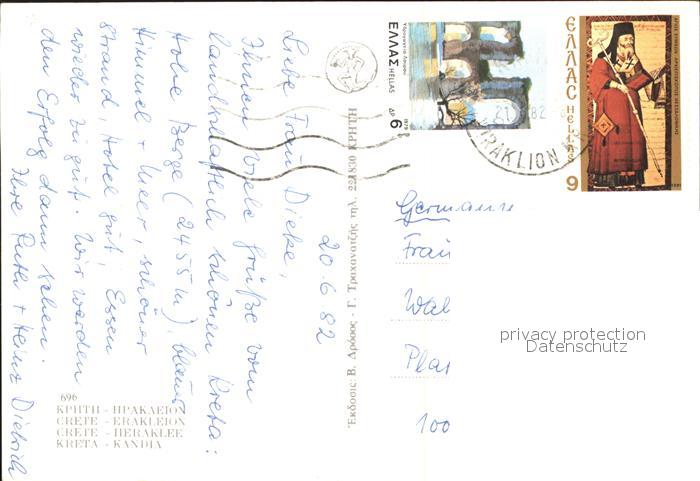 20.6.82
Liebe Frau Dieke,
Ihnen viele Grüße vom
landschaftlich schönen Kreta:
Hohe Berge (2455 m), blauer
Himmel + Meer, schöner
Strand, Hotel gut, Essen
wieder zu gut. Wir werden
den Erfolg dann sehen.
Ihre Ruth + Heinz Dietrich
696
ΚΡΗΤΗ - ΗΡΑΚΛΕΙΟΝ
CRETE - ERAKLEION
CRETE - HERAKLEE
KRETA - KANDIA
Ἔκδοσις: Β. Δρόσος - Γ. Τραχανατζῆς τηλ. 221830 ΚΡΗΤΗ
ΕΛΛΑΣ HELLAS
ΔΡ 6
ΕΛΛΑΣ HELLAS
9
21 82
IRAKLION
Germany
Frau
Wal
Plat
100
privacy protection
Datenschutz